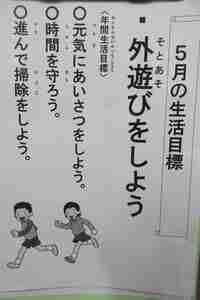 5月の生活目標
・外遊びをしよう
〈年間生活目標〉
○元気にあいさつをしよう。
○時間を守ろう。
○進んで掃除をしよう。